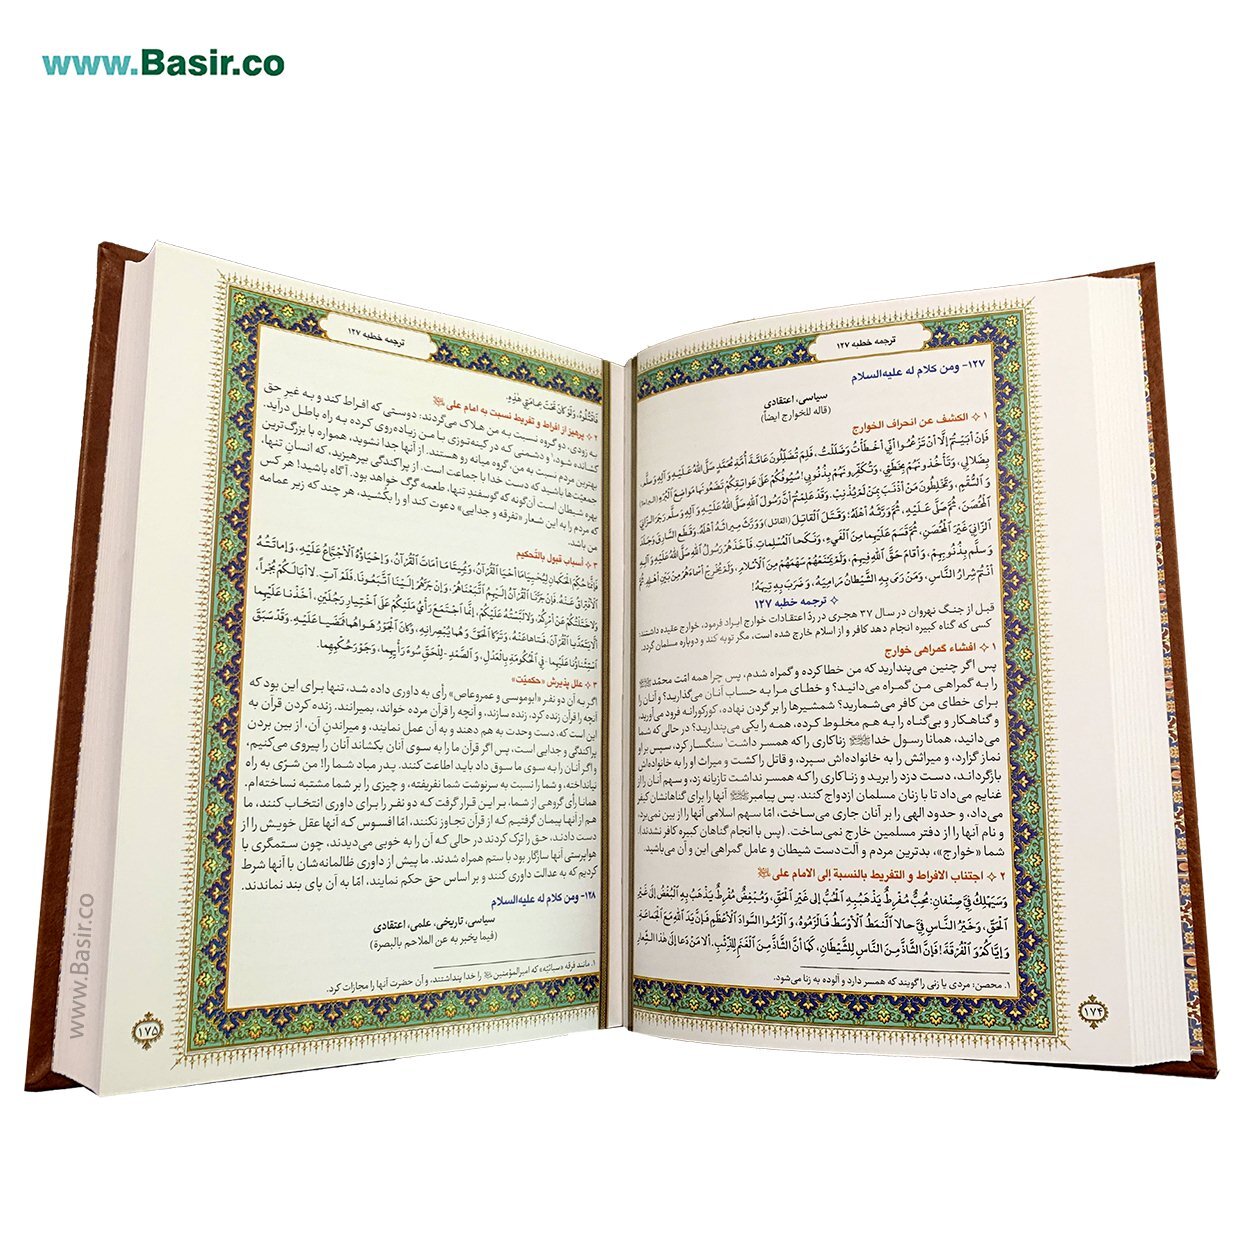 www.Basir.co
ترجمه خطبه ۱۲۷
۱۲۷- ومن کلام له علیه‌السلام
سیاسی، اعتقادی
(قاله للخوارج ایضاً)
۱ ❖ الکشف عن انحراف الخوارج
فَإِنْ أَبَيْتُمْ إِلَّا أَنْ تَزْعُمُوا أَنِّي أَخْطَأْتُ وَضَلَلْتُ، فَلِمَ تُضَلِّلُونَ عَامَّةَ أُمَّةِ مُحَمَّدٍ صَلَّى اللهُ عَلَيْهِ وَ آلِهِ وَسَلَّمَ،
بِضَلَالِي، وَتَأْخُذُونَهُمْ بِخَطَئِي، وَتُكَفِّرُونَهُمْ بِذُنُوبِي! سُيُوفُكُمْ عَلَى عَوَاتِقِكُمْ تَضَعُونَهَا مَوَاضِعَ الْبُرْءِ
وَ السُّقْمِ، وَتَخْلِطُونَ مَنْ أَذْنَبَ بِمَنْ لَمْ يُذْنِبْ. وَقَدْ عَلِمْتُمْ أَنَّ رَسُولَ اللهِ صَلَّى اللهُ عَلَيْهِ وَ آلِهِ وَسَلَّمَ رَجَمَ الزَّانِيَ
الْمُحْصَنَ، ثُمَّ صَلَّى عَلَيْهِ، ثُمَّ وَرَّثَهُ أَهْلَهُ؛ وَقَتَلَ الْقَاتِلَ وَوَرَّثَ مِيرَاثَهُ أَهْلَهُ. وَقَطَعَ السَّارِقَ وَجَلَدَ
الزَّانِيَ غَيْرَ الْمُحْصَنِ، ثُمَّ قَسَمَ عَلَيْهِمَا مِنَ الْفَيْءِ، وَنَكَحَا الْمُسْلِمَاتِ. فَأَخَذَهُمْ رَسُولُ اللهِ صَلَّى اللهُ عَلَيْهِ وَ آلِهِ
وَ سَلَّمَ بِذُنُوبِهِمْ، وَأَقَامَ حَقَّ اللهِ فِيهِمْ، وَلَمْ يَمْنَعْهُمْ سَهْمَهُمْ مِنَ الْإِسْلَامِ، وَلَمْ يُخْرِجْ أَسْمَاءَهُمْ مِنْ بَيْنِ أَهْلِهِ. ثُمَّ
أَنْتُمْ شِرَارُ النَّاسِ، وَمَنْ رَمَى بِهِ الشَّيْطَانُ مَرَامِيَهُ، وَ ضَرَبَ بِهِ تِيهَهُ!
❖ ترجمه خطبه ۱۲۷
قبل از جنگ نهروان در سال ۳۷ هجری در ردّ اعتقادات خوارج ایراد فرمود، خوارج عقیده داشتند:
کسی که گناه کبیره انجام دهد کافر و از اسلام خارج شده است، مگر توبه کند و دوباره مسلمان گردد.
۱ ❖ افشاء گمراهی خوارج
پس اگر چنین می‌پندارید که من خطا کرده و گمراه شدم، پس چرا همه امّت محمّد ﷺ
را به گمراهی من گمراه می‌دانید؟ و خطای مرا به حساب آنان می‌گذارید؟ و آنان را
برای خطای من کافر می‌شمارید؟ شمشیرها را بر گردن نهاده، کورکورانه فرود می‌آورید،
و گناهکار و بی‌گناه را به هم مخلوط کرده، همه را یکی می‌پندارید؟ در حالی که شما
می‌دانید، همانا رسول خدا ﷺ زناکاری را که همسر داشت¹ سنگسار کرد، سپس بر او
نماز گزارد، و میراثش را به خانواده‌اش سپرد، و قاتل را کشت و میراث او را به خانواده‌اش
بازگرداند، دست دزد را برید و زناکاری را که همسر نداشت تازیانه زد، و سهم آنان را از
غنایم می‌داد تا با زنان مسلمان ازدواج کنند. پس پیامبر ﷺ آنها را برای گناهانشان کیفر
می‌داد، و حدود الهی را بر آنان جاری می‌ساخت، امّا سهم اسلامی آنها را از بین نمی‌برد،
و نام آنها را از دفتر مسلمین خارج نمی‌ساخت. (پس با انجام گناهان کبیره کافر نشدند).
شما «خوارج»، بدترین مردم و آلت‌دست شیطان و عامل گمراهی این و آن می‌باشید.
۲ ❖ اجتناب الافراط و التفریط بالنسبة إلی الامام علی
وَسَيَهْلِكُ فِيَّ صِنْفَانِ: مُحِبٌّ مُفْرِطٌ يَذْهَبُ بِهِ الْحُبُّ إِلَى غَيْرِ الْحَقِّ، وَمُبْغِضٌ مُفْرِطٌ يَذْهَبُ بِهِ الْبُغْضُ إِلَى غَيْرِ
الْحَقِّ، وَخَيْرُ النَّاسِ فِيَّ حَالًا النَّمَطُ الْأَوْسَطُ فَالْزَمُوهُ، وَ الْزَمُوا السَّوَادَ الْأَعْظَمَ فَإِنَّ يَدَ اللهِ مَعَ الْجَمَاعَةِ.
وَ إِيَّاكُمْ وَ الْفُرْقَةَ! فَإِنَّ الشَّاذَّ مِنَ النَّاسِ لِلشَّيْطَانِ، كَمَا أَنَّ الشَّاذَّ مِنَ الْغَنَمِ لِلذِّئْبِ. أَلَا مَنْ دَعَا إِلَى هَذَا الشِّعَارِ
۱. محصن: مردی با زنی را گویند که همسر دارد و آلوده به زنا می‌شود.
۱۷۴
ترجمه خطبه ۱۲۷
فَاقْتُلُوهُ، وَلَوْ كَانَ تَحْتَ عِمَامَتِي هَذِهِ.
۲ ❖ پرهیز از افراط و تفریط نسبت به امام علی
به زودی، دو گروه نسبت به من هلاک می‌گردند: دوستی که افراط کند و به غیرِ حق
کشانده شود،¹ و دشمنی که در کینه‌توزی با من زیاده‌روی کرده به راه باطل درآید.
بهترین مردم نسبت به من، گروه میانه رو هستند. از آنها جدا نشوید، همواره با بزرگ‌ترین
جمعیّت‌ها باشید که دست خدا با جماعت است. از پراکندگی بپرهیزید، که انسان تنها،
بهره شیطان است آن‌گونه که گوسفند تنها، طعمه گرگ خواهد بود. آگاه باشید! هر کس
که مردم را به این شعار «تفرقه و جدایی» دعوت کند او را بکُشید، هر چند که زیر عمامه
من باشد.
۳ ❖ أسباب قبول بالتّحکیم
فَإِنَّمَا حُكِّمَ الْحَكَمَانِ لِيُحْيِيَا مَا أَحْيَا الْقُرْآنُ، وَيُمِيتَا مَا أَمَاتَ الْقُرْآنُ، وَإِحْيَاؤُهُ الْاجْتِمَاعُ عَلَيْهِ، وَإِمَاتَتُهُ
الْافْتِرَاقُ عَنْهُ. فَإِنْ جَرَّنَا الْقُرْآنُ إِلَيْهِمُ اتَّبَعْنَاهُمْ، وَإِنْ جَرَّهُمْ إِلَيْنَا اتَّبَعُونَا. فَلَمْ آتِ لَا أَبَا لَكُمْ بُجْرًا،
وَلَا خَتَلْتُكُمْ عَنْ أَمْرِكُمْ، وَلَا لَبَّسْتُهُ عَلَيْكُمْ، إِنَّمَا اجْتَمَعَ رَأْيُ مَلَئِكُمْ عَلَى اخْتِيَارِ رَجُلَيْنِ، أَخَذْنَا عَلَيْهِمَا
أَلَّا يَتَعَدَّيَا الْقُرْآنَ، فَتَاهَا عَنْهُ، وَتَرَكَا الْحَقَّ وَهُمَا يُبْصِرَانِهِ، وَكَانَ الْجَوْرُ هَوَاهُمَا فَمَضَيَا عَلَيْهِ. وَقَدْ سَبَقَ
اسْتِثْنَاؤُنَا عَلَيْهِمَا فِي الْحُكُومَةِ بِالْعَدْلِ، وَ الصَّمْدِ لِلْحَقِّ سُوءَ رَأْيِهِمَا، وَجَوْرَ حُكْمِهِمَا.
۳ ❖ علل پذیرش «حکمیّت»
اگر به آن دو نفر «ابوموسی و عمروعاص» رأی به داوری داده شد، تنها برای این بود که
آنچه را قرآن زنده کرد، زنده سازند، و آنچه را قرآن مرده خواند، بمیرانند. زنده کردن قرآن به
این است که، دست وحدت به هم دهند و به آن عمل نمایند، و میراندنِ آن، از بین بردن
پراکندگی و جدایی است، پس اگر قرآن ما را به سوی آنان بکشاند آنان را پیروی می‌کنیم،
و اگر آنان را به سوی ما سوق داد باید اطاعت کنند. پدر مباد شما را! من شرّی به راه
نیانداخته، و شما را نسبت به سرنوشت شما نفریفته، و چیزی را بر شما مشتبه نساخته‌ام.
همانا رأی گروهی از شما، بر این قرار گرفت که دو نفر را برای داوری انتخاب کنند، ما
هم از آنها پیمان گرفتیم که از قرآن تجاوز نکنند، امّا افسوس که آنها عقل خویش را از
دست دادند، حق را ترک کردند در حالی که آن را به خوبی می‌دیدند، چون ستمگری با
هواپرستی آنها سازگار بود با ستم همراه شدند. ما پیش از داوری ظالمانه‌شان با آنها شرط
کردیم که به عدالت داوری کنند و بر اساس حق حکم نمایند، امّا به آن پای بند نماندند.
۱۲۸- ومن کلام له علیه‌السلام
سیاسی، تاریخی، علمی، اعتقادی
(فیما یخبر به عن الملاحم بالبصرة)
۱. مانند فرقه «سبائیّه» که امیرالمؤمنین را خدا پنداشتند، و آن حضرت آنها را مجازات کرد.
۱۷۵
www.Basir.co